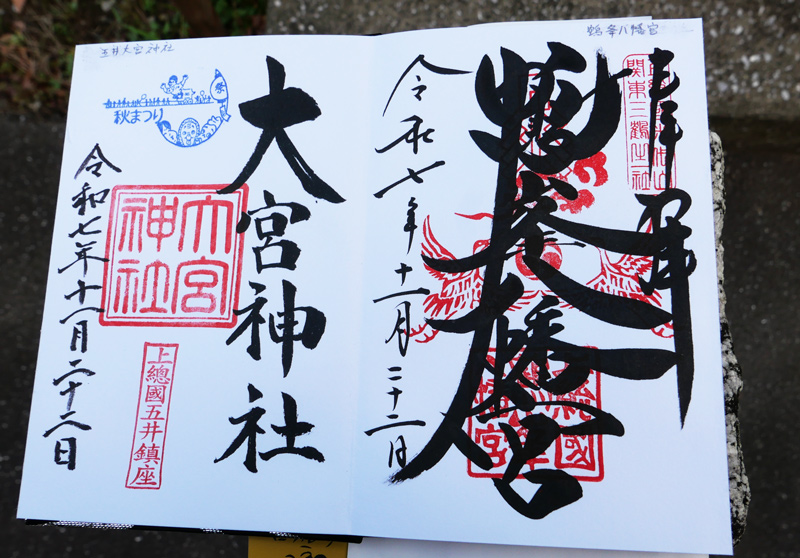 鶴峯八幡宮
奉拝
関東三鶴之一社
鶴峯八幡宮
令和七年十一月二十二日
五井大宮神社
大宮神社
大宮
神社
上總國五井鎮座
祭
秋まつり
令和七年十一月二十二日